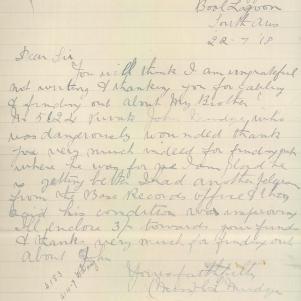 Bool Lagoon
South Aus
22-7-18
Dear Sir
You will think I am ungrateful
not writing & thanking you for
& finding out about My Brother
No 5622 John who
was dangerously wounded thank
you very much indeed for finding out
where he was for me I am glad he
is getting better I had another
from the Base Records office & they
said his condition was improving
Ill enclose 3/- towards your funds
& thanks very much for finding out
About John
Yours faithfully
4183